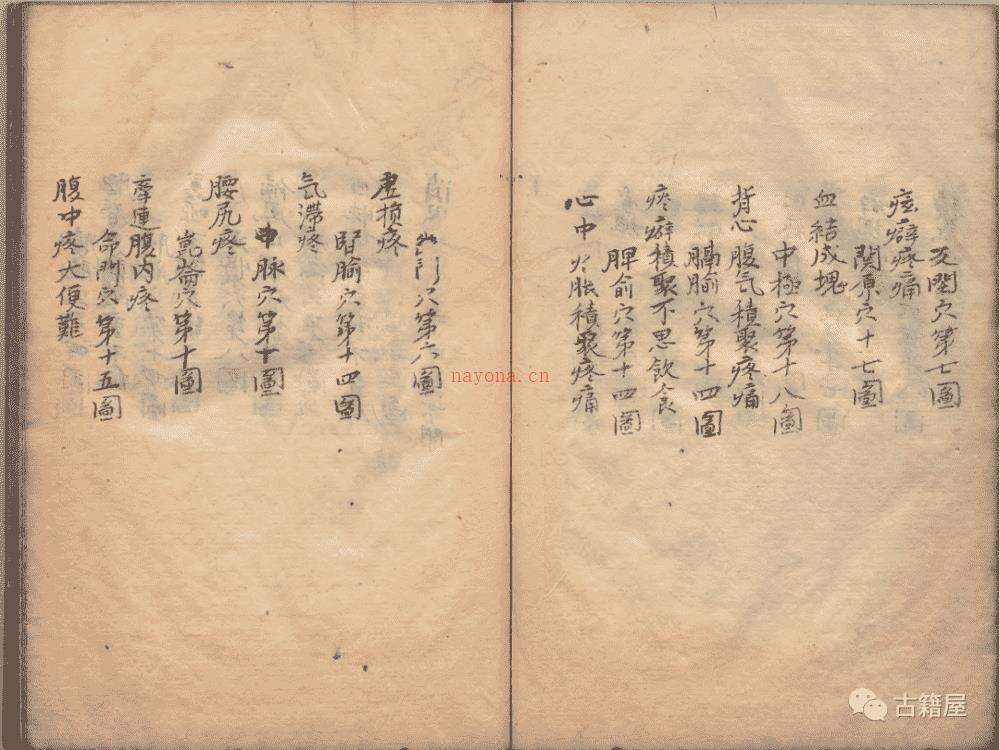 支閏穴第七圖
痃癖疼痛
関原穴十七圖
血結成塊
中極穴第十八圖
背心腹気積聚疼痛
膈腧穴第十四圖
痃癖積聚不思飲食
脾俞穴第十四圖
心中疼脹積聚疼痛
門穴第六圖
虚损疼
腎腧穴第十四圖
気滞疼
申脉穴第十圖
腰尻疼
崑崙穴第十圖
牽連腹内疼
命門穴第十五圖
腹中疼大便難
nayona.cn
古籍屋